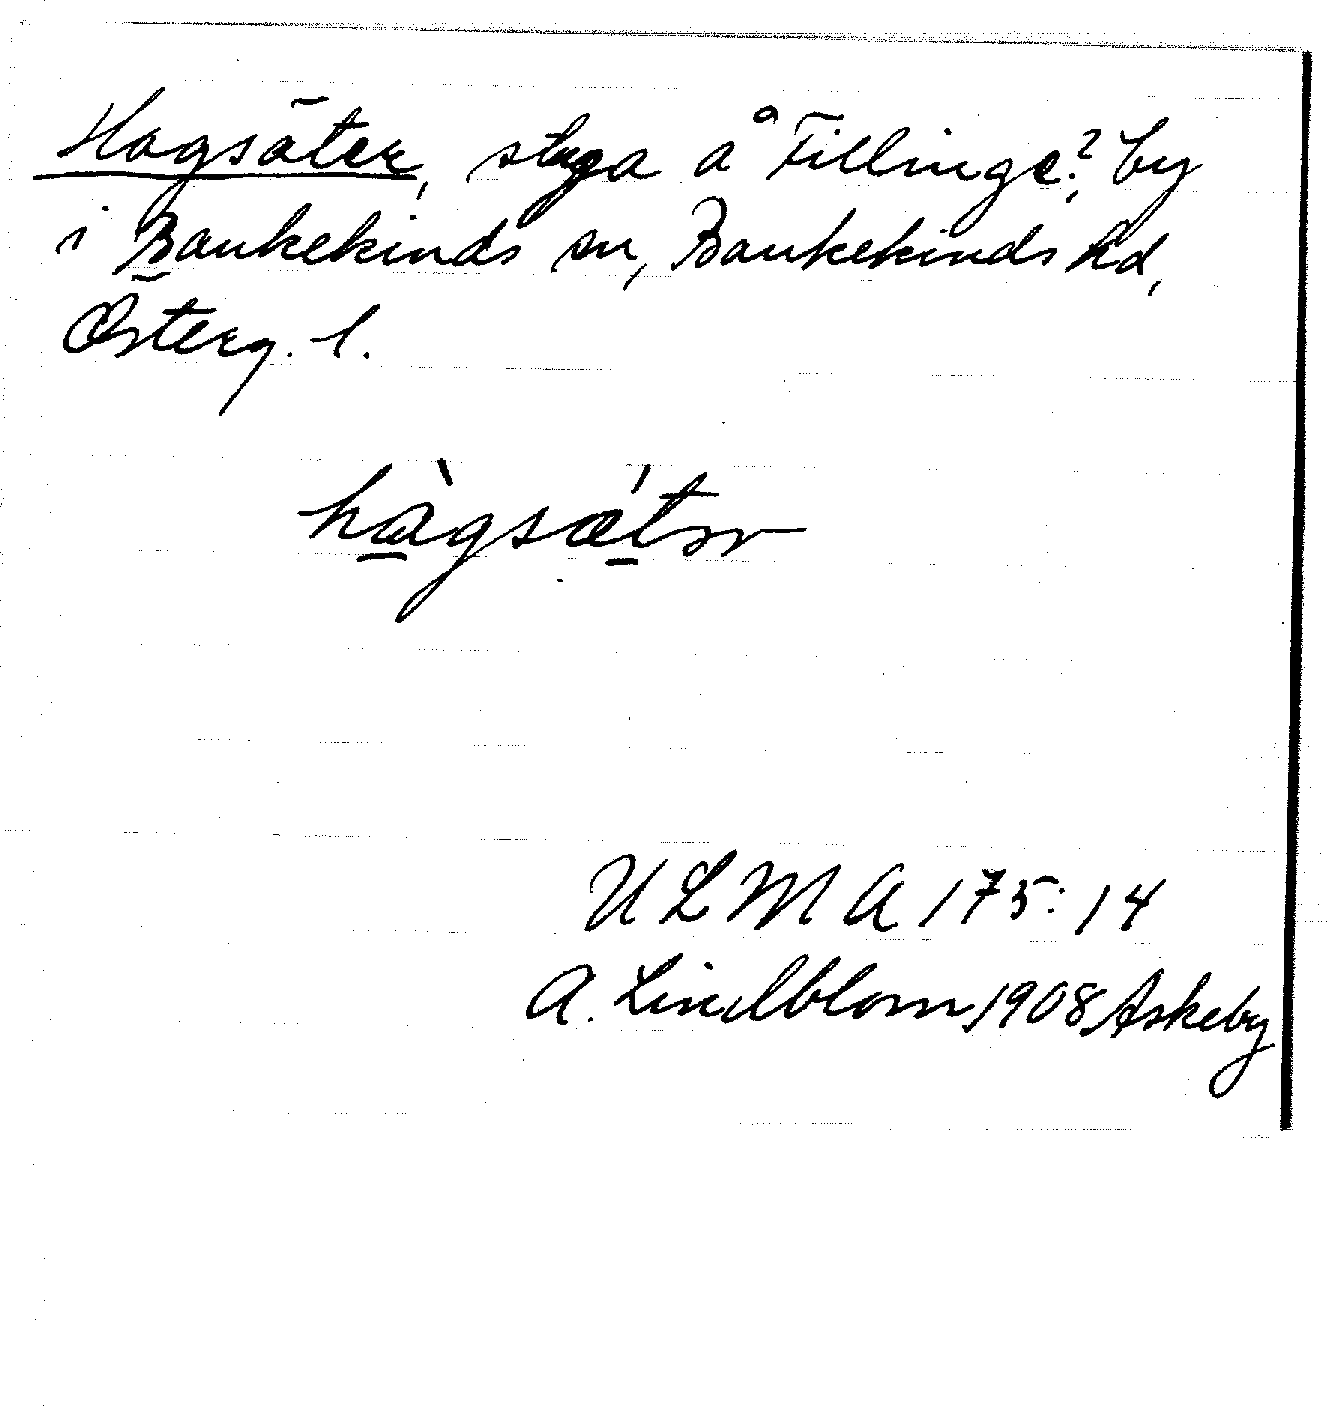 Hagsäter, stuga å Fillinge?, by
i Bankekinds sn, Bankekinds hd,
Österg. l.
hàgsǽtər
ULMA 175:14
A. Lindblom 1908 Askeby